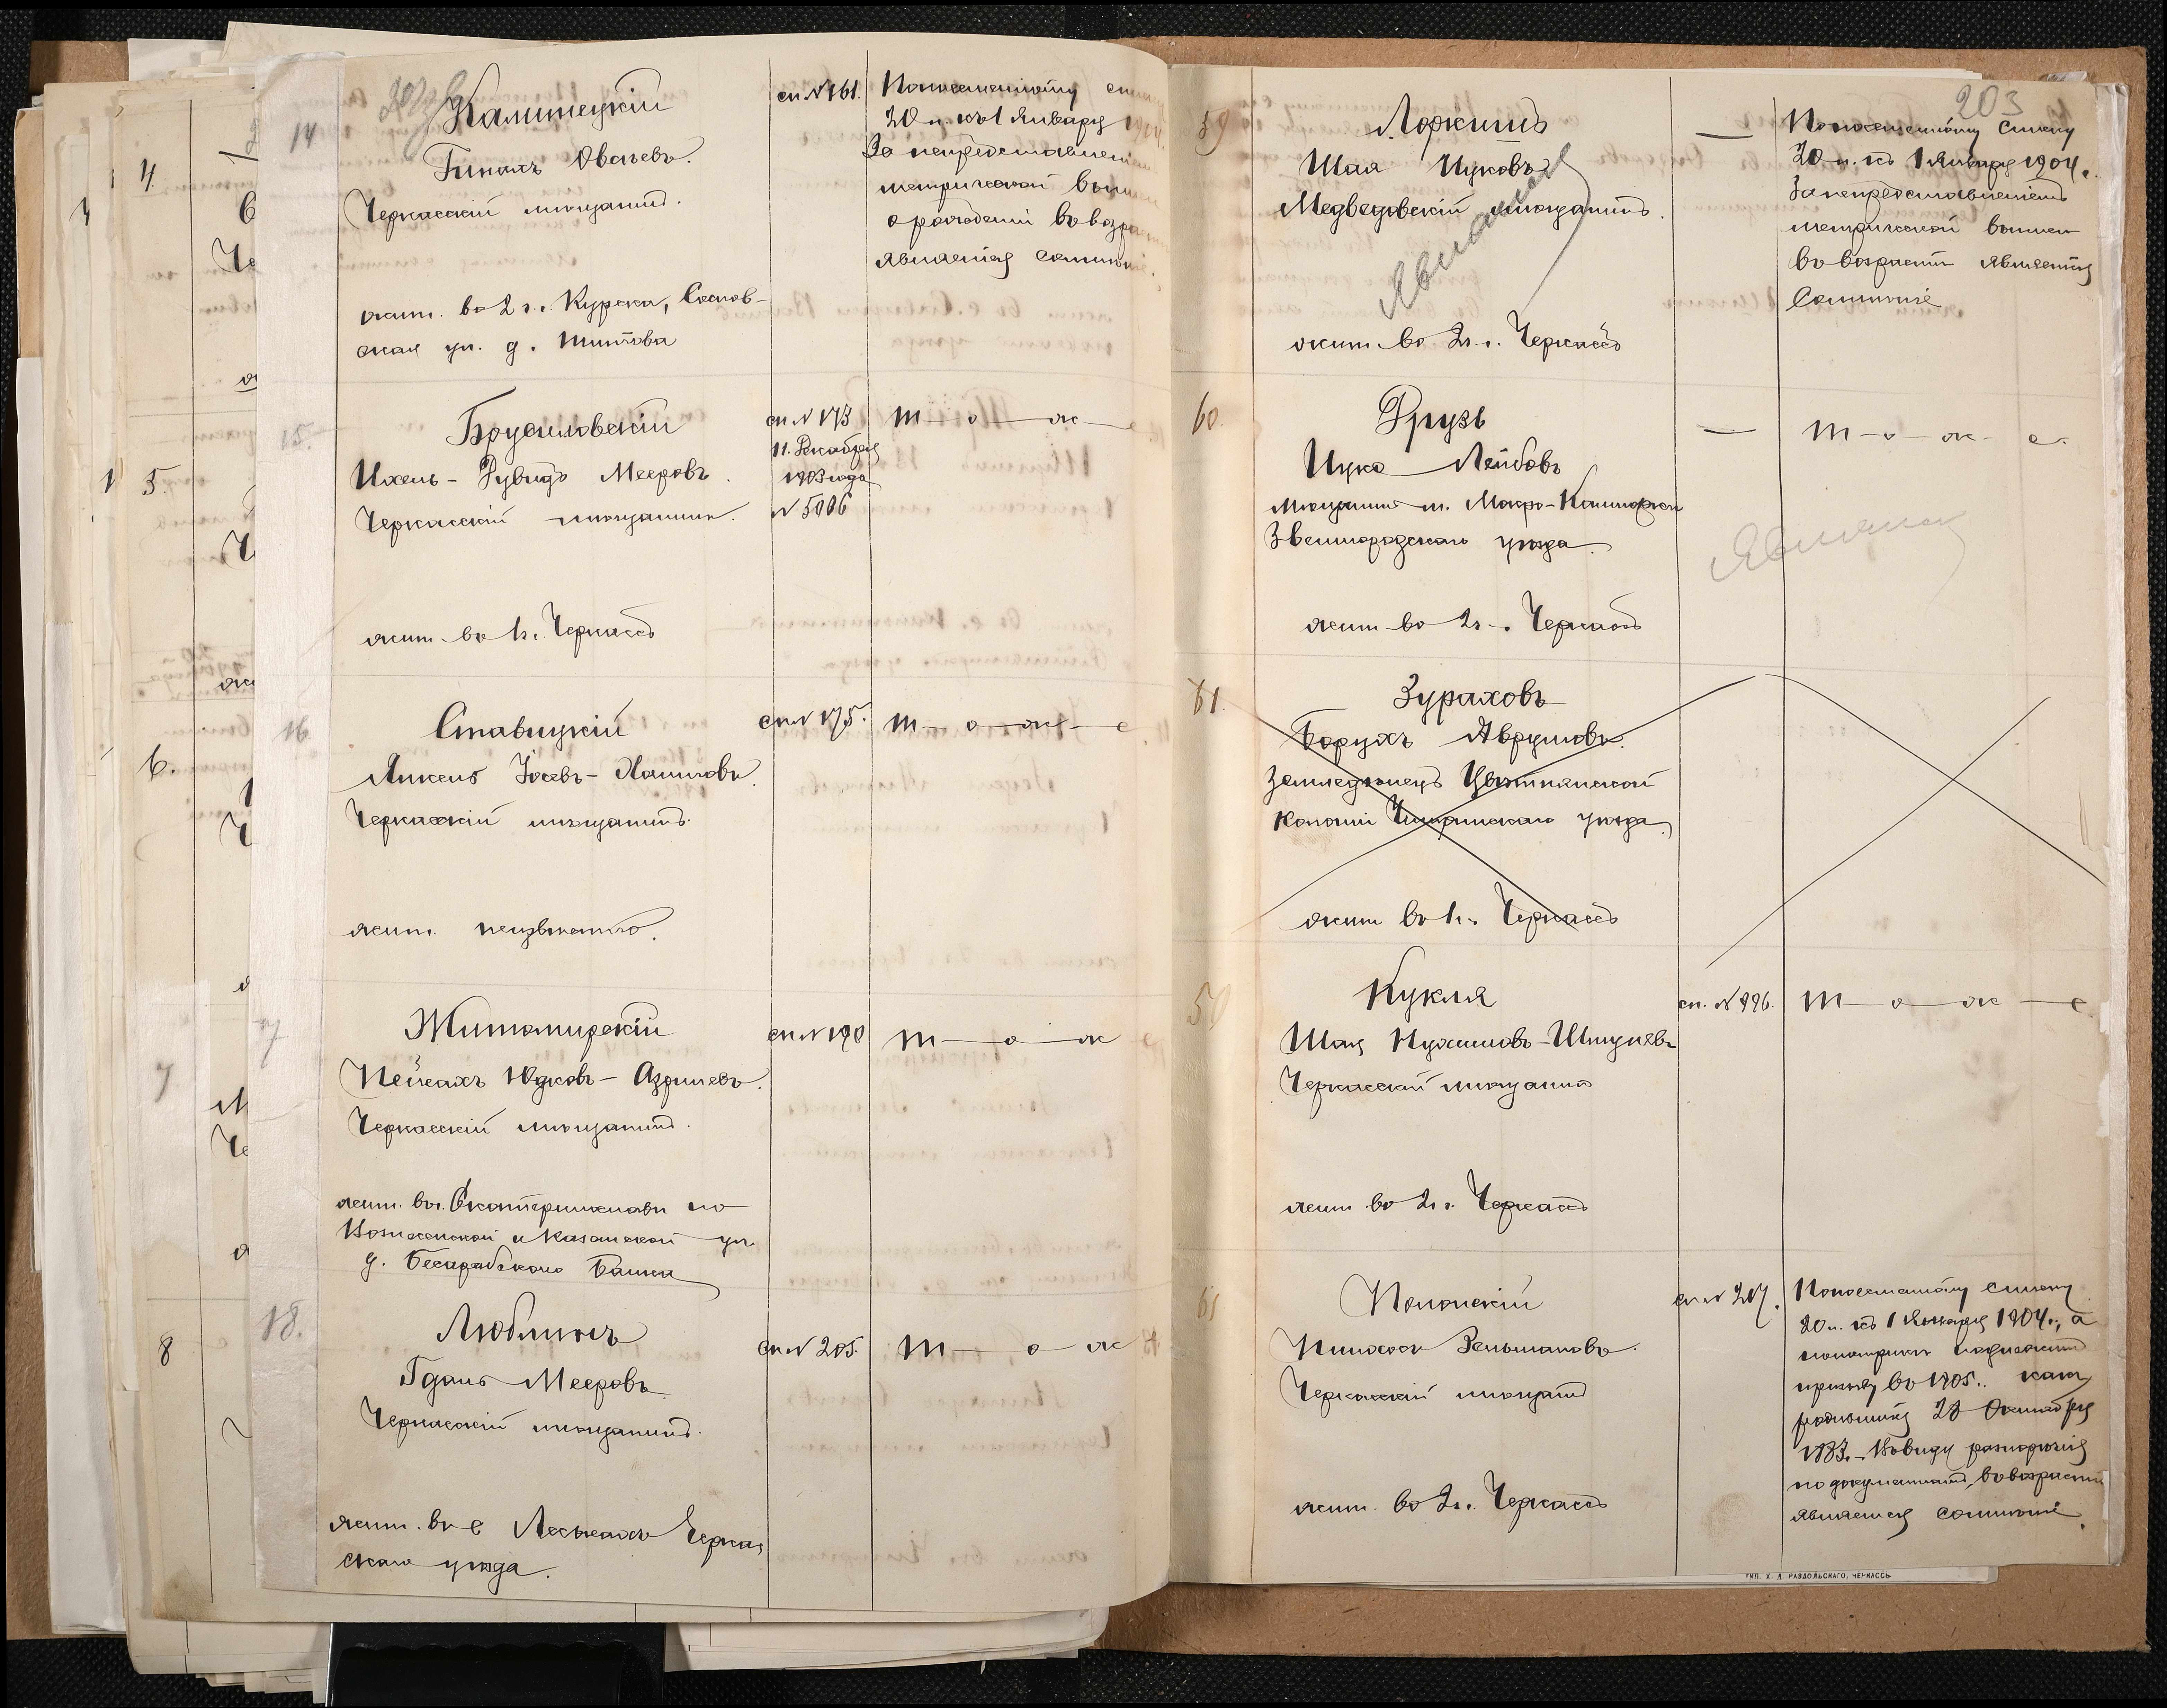 14
Калитецкій
Гинахъ Овсѣевъ.
Черкасскій мѣщанинъ.
жит. въ 2 г. Курска,
ская ул. д.
сп. № 161.
По посемейному
20 л. къ 1 Января
За непредставленіем
метрической
о рожденіи въ
является
15.
Брусиловскій
Ихель-Рувидъ Мееровъ.
Черкасскій мѣщанинъ.
жит. въ 1 г. Черкассъ
сп № 173
11. Декабря
1903 года
№ 5006
т—о—ж—е
16
Ставицкій
Янкель Іосевъ-Хаимовъ.
Черкасскій мѣщанинъ.
жит. неизвѣстно.
сп № 175.
т—о—ж—е
Житомирскій
Пейсахъ Юдковъ-Азрилевъ.
Черкасскій мѣщанинъ.
жит. въ г. Екатеринославѣ по
Вознесенской и Казанской ул
д. Бесарабскаго Банка
сп № 190
т—о—ж е
18.
Люблинъ
Гдаль Мееровъ
Черкасскій мѣщанинъ.
жит. въ с Леськахъ Черкас
скаго уѣзда.
сп № 205.
т—о ж
203
59
Лоркишъ
Шая Ицковъ
Медведовскій мѣщанинъ.
Явился
жит. въ 2 г. Черкассъ
—
По посемейному списку
20 л. къ 1 Января 1904 г.
За непредставленіемъ
метрической выписи
въ возрастѣ является
Сомнѣніе
60.
Друзь
Ицко Лейбовъ
Мѣщанинъ м. Мокро-Калигорки
Звенигородскаго уѣзда.
жит въ 2 г. Черкассъ
—
т-о-ж-е.
61.
Зураховъ
Борухъ Аврумовъ.
Земледѣлецъ
Колоніи Чигиринскаго уѣзда.
жит въ 1 г. Черкассъ
Кукля
Шая Нухимовъ-Шмулевъ
Черкасскій мѣщанинъ
жит. въ 2 г. Черкассъ
сп. № 226.
т—о—ж—е.
Полонскій
Пинхосъ Зельмановъ.
Черкасскій мѣщанинъ
жит. въ 2 г. Черкассъ
сп № 207.
По посемейному списку
20 л. къ 1 Января 1904 г., а
по метрикѣ подлежитъ
призыву въ 1905 г. какъ
родившійся 28 Октября
1883.- Въ виду разнорѣчія
по документамъ, въ возрастѣ
является сомнѣніе.
4.
5.
6.
7
8
ТИП. Х. Д. РАЗДОЛЬСКАГО, ЧЕРКАССЪ